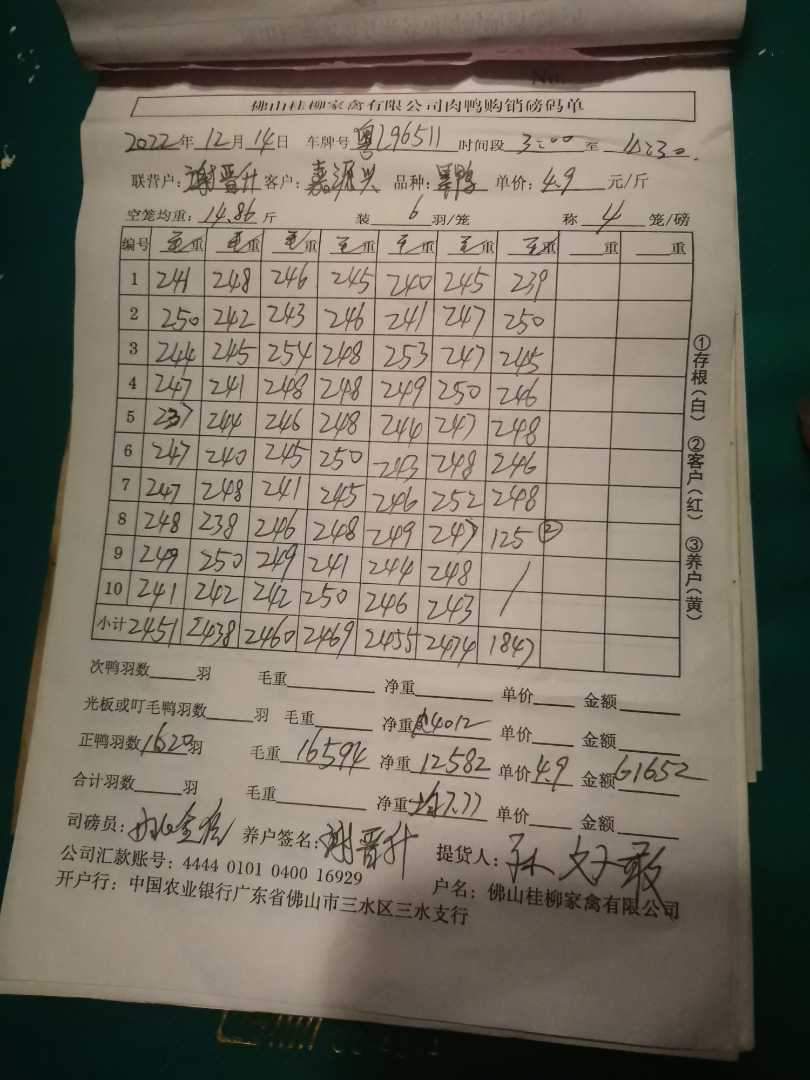 佛山桂柳家禽有限公司肉鸭购销磅码单
2022年12月14日 车牌号 粤L96511 时间段 3:00 至 4:30.
联营户:谢晋升 客户:嘉源兴 品种: 单价:4.9 元/斤
空笼均重:14.86斤 装 6 羽/笼 称 4 笼/磅
编号 毛重 毛重 毛重 毛重 毛重 毛重 毛重 重 重
1 241 248 246 245 240 245 239
2 250 242 243 246 241 247 250
3 244 245 254 248 253 247 245
4 247 241 248 248 249 250 246
5 237 244 246 248 244 247 248
6 247 240 245 250 243 248 246
7 247 248 241 245 246 252 248
8 248 238 246 248 249 247 125 ②
9 249 250 249 241 244 248 /
10 241 242 242 250 246 243 /
小计 2451 2438 2460 2469 2455 2474 1847
①存根(白) ②客户(红) ③养户(黄)
次鸭羽数 羽 毛重 净重 单价 金额
光板或叮毛鸭羽数 羽 毛重 净重 4012 单价 金额
正鸭羽数1620羽 毛重 16594 净重 12582 单价4.9 金额61652
合计羽数 羽 毛重 净重 均7.77 单价 金额
司磅员: 养户签名:谢晋升 提货人:
公司汇款账号:4444 0101 0400 16929 户名:佛山桂柳家禽有限公司
开户行:中国农业银行广东省佛山市三水区三水支行